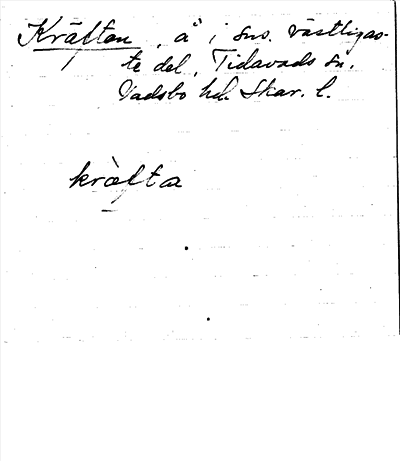 Kräftan, å i sns. västligas-
te del, Tidavads sn.
Vadsbo hd. Skar. l.
kræ̀fta